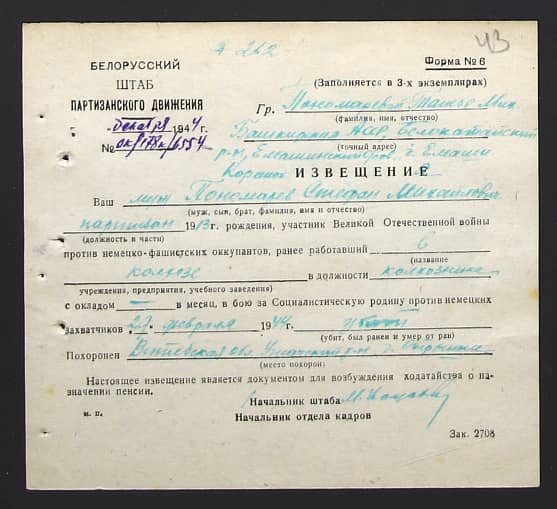 43
№ 262
БЕЛОРУССКИЙ
ШТАБ
ПАРТИЗАНСКОГО ДВИЖЕНИЯ
декабря 1944 г.
№ ок/175к/6554
Форма № 6
(Заполняется в 3-х экземплярах)
Гр. Пономаревой Мих.
(фамилия, имя, отчество)
Башкирская Аср, Белокатайский
(точный адрес)
р-н, Емашинский с. Емаши
ИЗВЕЩЕНИЕ
Ваш муж Пономарев Стефан Михайлович
(муж, сын, брат, фамилия, имя и отчество)
партизан 1913 г. рождения, участник Великой Отечественной войны
(должность в части)
против немецко-фашистских оккупантов, ранее работавший в
(название
колхозе в должности колхозника
учреждения, предприятия, учебного заведения)
с окладом — в месяц, в бою за Социалистическую родину против немецких
захватчиков 29 февраля 1944 г. убит
(убит, был ранен и умер от ран)
Похоронен Витебская обл. Ушачский р-н д.
(место похорон)
Настоящее извещение является документом для возбуждения ходатайства о на-
значении пенсии.
Начальник штаба
м. п.
Начальник отдела кадров
Зак. 2708